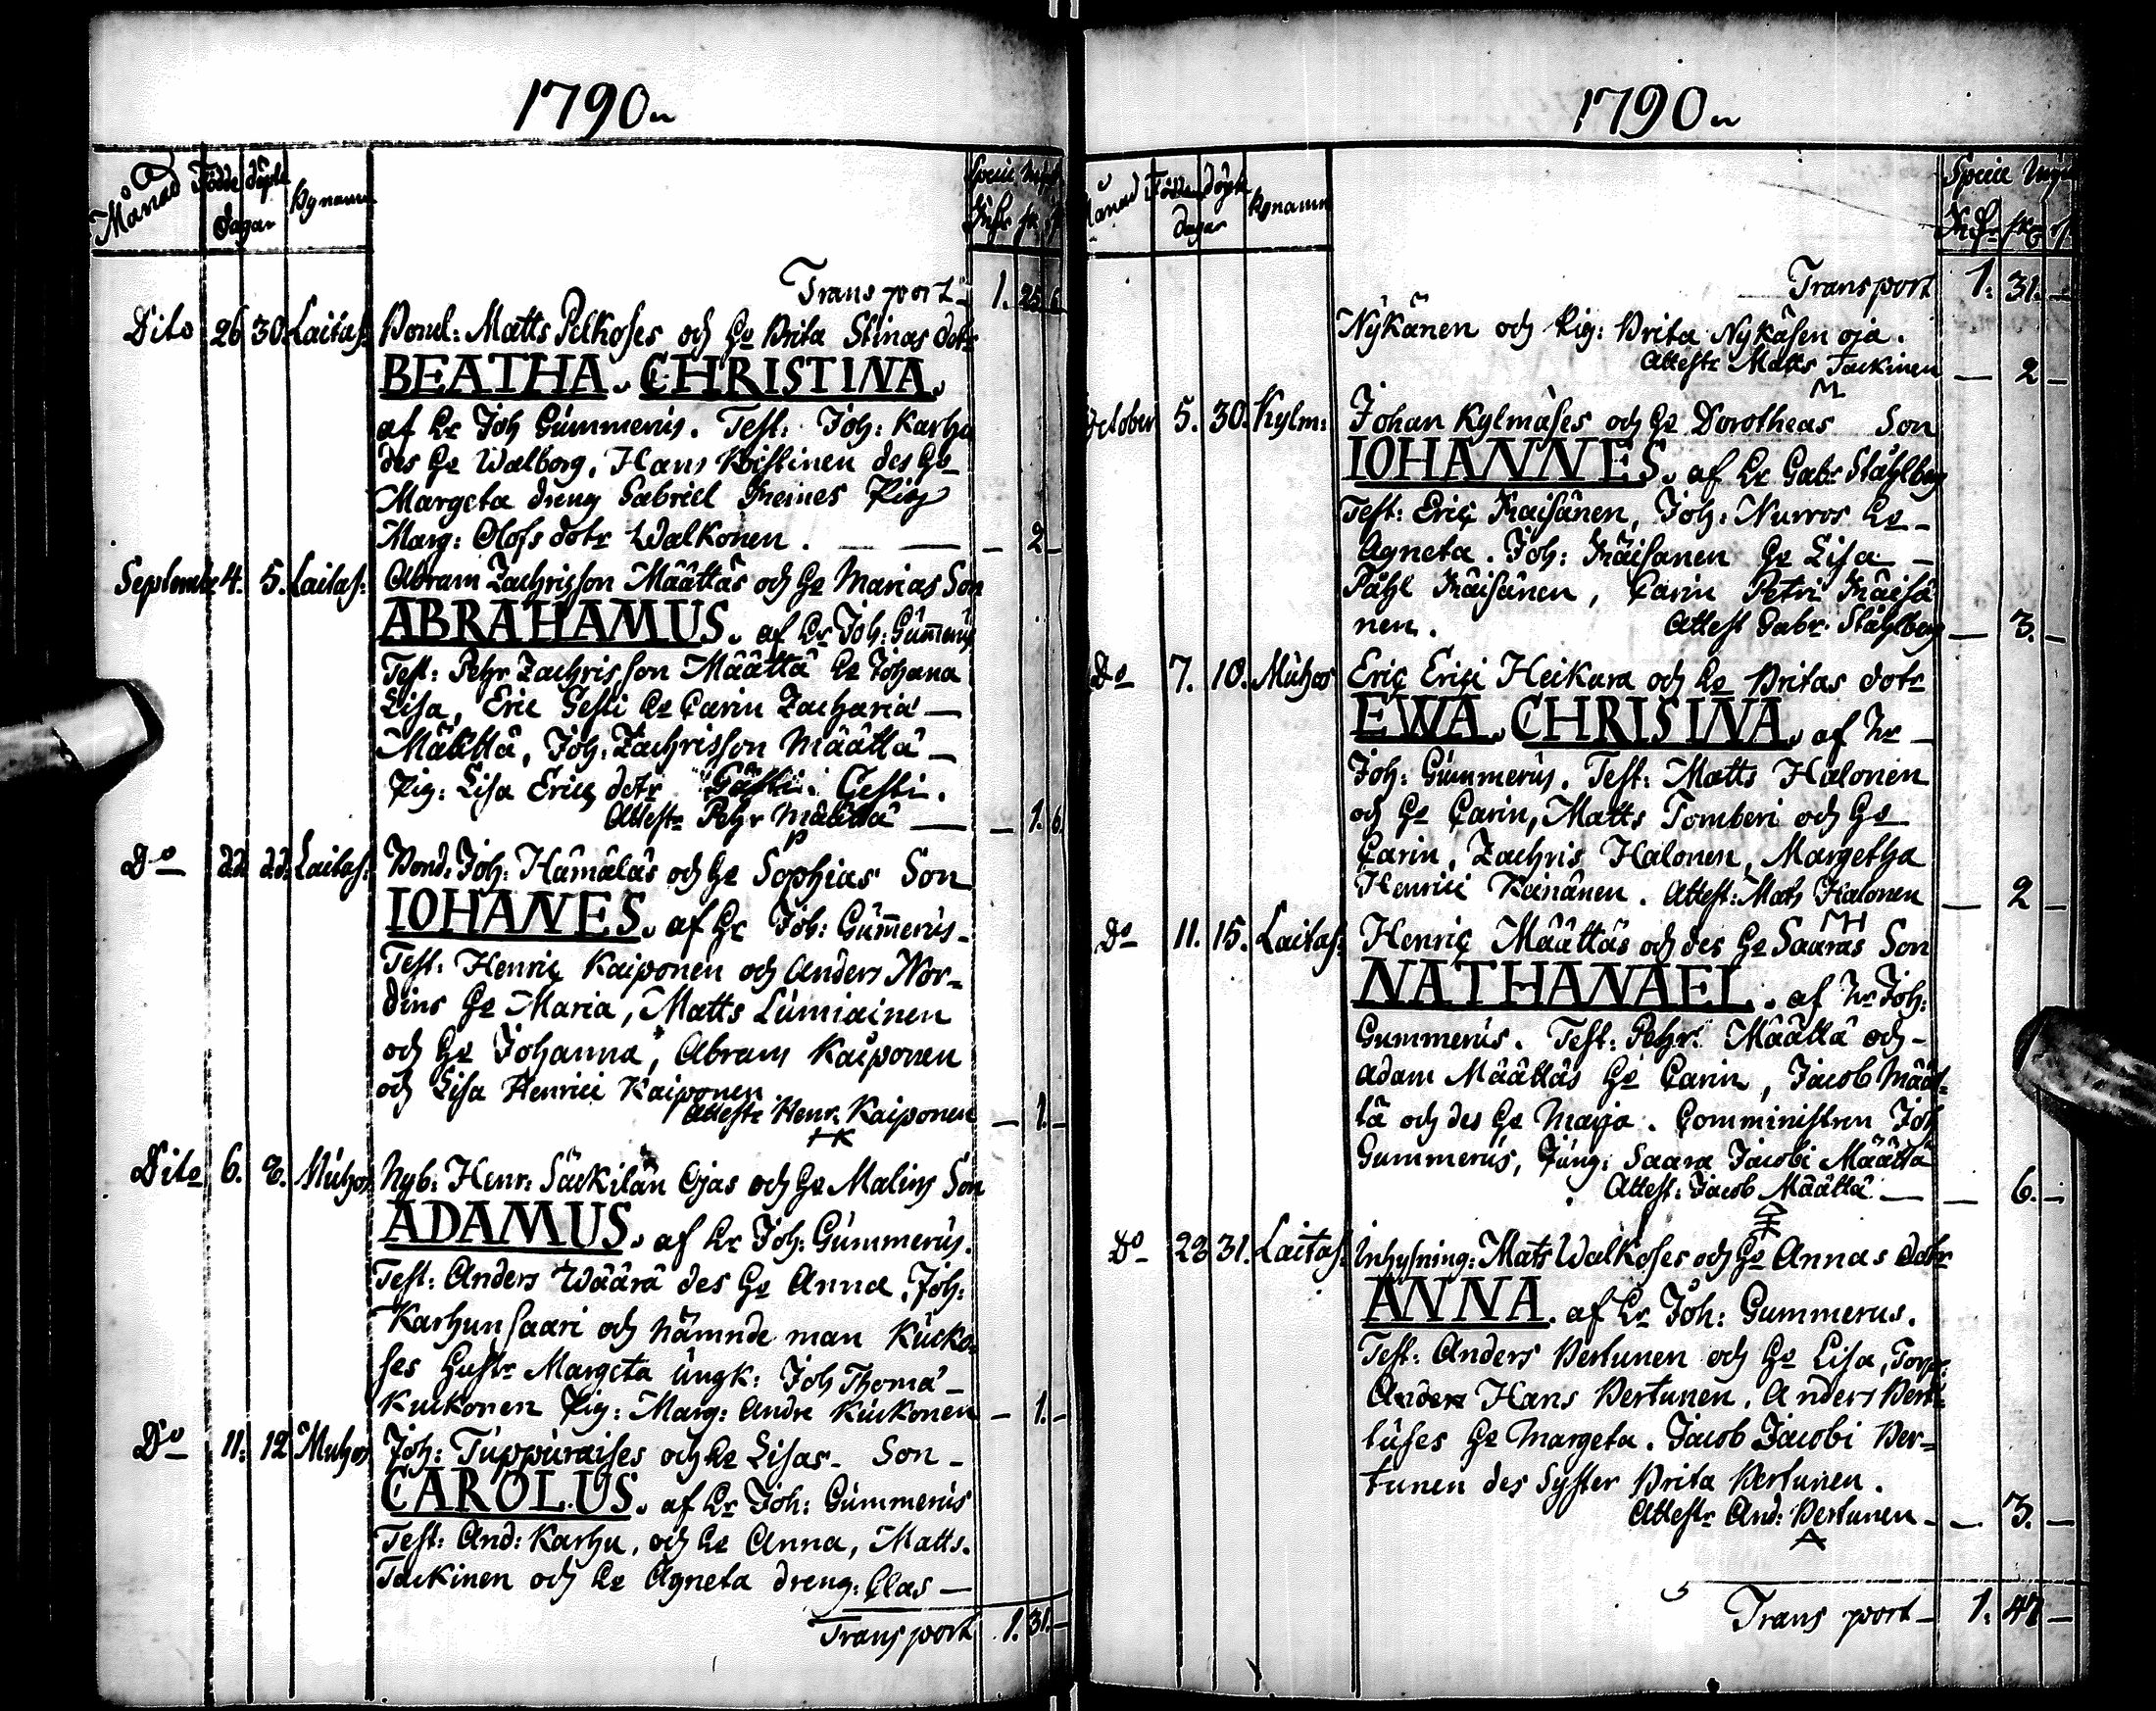 1790.
Månad Födde döpte dagar Bynamn Specie
Transport 1. 25. 6
Dito 26 30. Laitas: Bond: Matts Pelkoses och Hu Brita Stinas dotr
BEATHA. CHRISTINA.
af Hr Joh Gummerus. Test: Joh: Karhu
des Hu Walborg, Hans Kristinen des Hu
Margeta dreng Gabriel Pig
Marg: Olofs dotr Walkonen. — 2 —
Septembr 4. 5. Laitas: Abram Zachrisson Määttäs och Hu Marias Son
ABRAHAMUS. af Hr Joh: Gummerus
Test: Pehr Zachrisson Määttä Hu Johana
Lisa, Eric Gesti Hu Carin Zacharia —
Määttä, Joh: Zachrisson Määttä —
Pig: Lisa Erics dotr Gesti.
Attestr Pehr Määttä — 1. 6.
P
Do 22. 23. Laitas: Bond: Joh: Hämäläs och Hu Sophias Son
IOHANES. af Hr Joh: Gummerus -
Test: Henric Kaiponen och Anders Nor=
dins Hu Maria, Matts Lumiainen
och Hu Johanna, Abram Kaiponen
och Lisa Henrici Kaiponen
Attestr Henr: Kaiponen — 1. —
HK
Dito 6. 8. Muhos Nyb: Henr: Säckilän Ojas och Hu Malins Son
ADAMUS. af Hr Joh: Gummerus.
Test: Anders Wäärä des Hu Anna, Joh:
Karhunsaari och Nämnde man Kucko=
ses Hustr Margeta ungk: Joh Thomä —
Kuckonen Pig: Marg: Andr Kuckonen — 1. —
Do 11. 12 Muhos Joh: Tuppuraises och Hu Lisas - Son -
CAROLUS. af Hr Joh: Gummerus
Test: And: Karhu, och Hu Anna, Matts.
Tackinen och Hu Agneta dreng: Clas —
Transport 1. 31. —
1790.
Månad Födde döpte dagar Bynamn Specie
Transport 1. 31. —
Nykänen och Pig: Brita Nykäsen oja.
Attestr Matts Tackinen — 2 —
M
October 5. 30. Kylm: Johan Kylmäses och Hu Dorotheas Son
IOHANNES. af Hr Gabr Ståhlberg
Test: Eric Kaisänen, Joh: Nurros Hu —
Agneta. Joh: Käisänen Hu Lisa —
Påhl Käisänen, Carin Petri Käisä
nen. Attest Gabr: Ståhlberg — 3. —
Do 7. 10. Muhos Eric Erici Heikura och Hu Britas dotr
EWA. CHRISINA. af Hr —
Joh: Gummerus. Test: Matts Halonen
och Hu Carin, Matts Tomberi och Hu
Carin, Zachris Halonen, Margetha
Henrici Keinänen. Attest: Mats Halonen — 2 —
MH
Do 11. 15. Laitas: Henric Määttäs och des Hu Saaras Son
NATHANAEL. af Hr Joh:
Gummerus. Test: Pehr Määttä och -
Adam Määttäs Hu Carin, Jacob Määt=
tä och des Hu Marja. Comministren Joh
Gummerus, Jung: Saara Jacobi Määttä
Attest: Jacob Määttä — 6. —
Do 23 31. Laitas: Inhysning: Mats Walkoses och Hu Annas dotr
ANNA. af Hr Joh: Gummerus.
Test: Anders Pertunen och Hu Lisa, Torp:
Anders Hans Pertunen. Anders Pert=
tuses Hu Margeta. Jacob Jacobi Per=
tunen des Syster Brita Pertunen.
Attestr And: Pertunen — 3. —
A
Transport — 1. 47 —